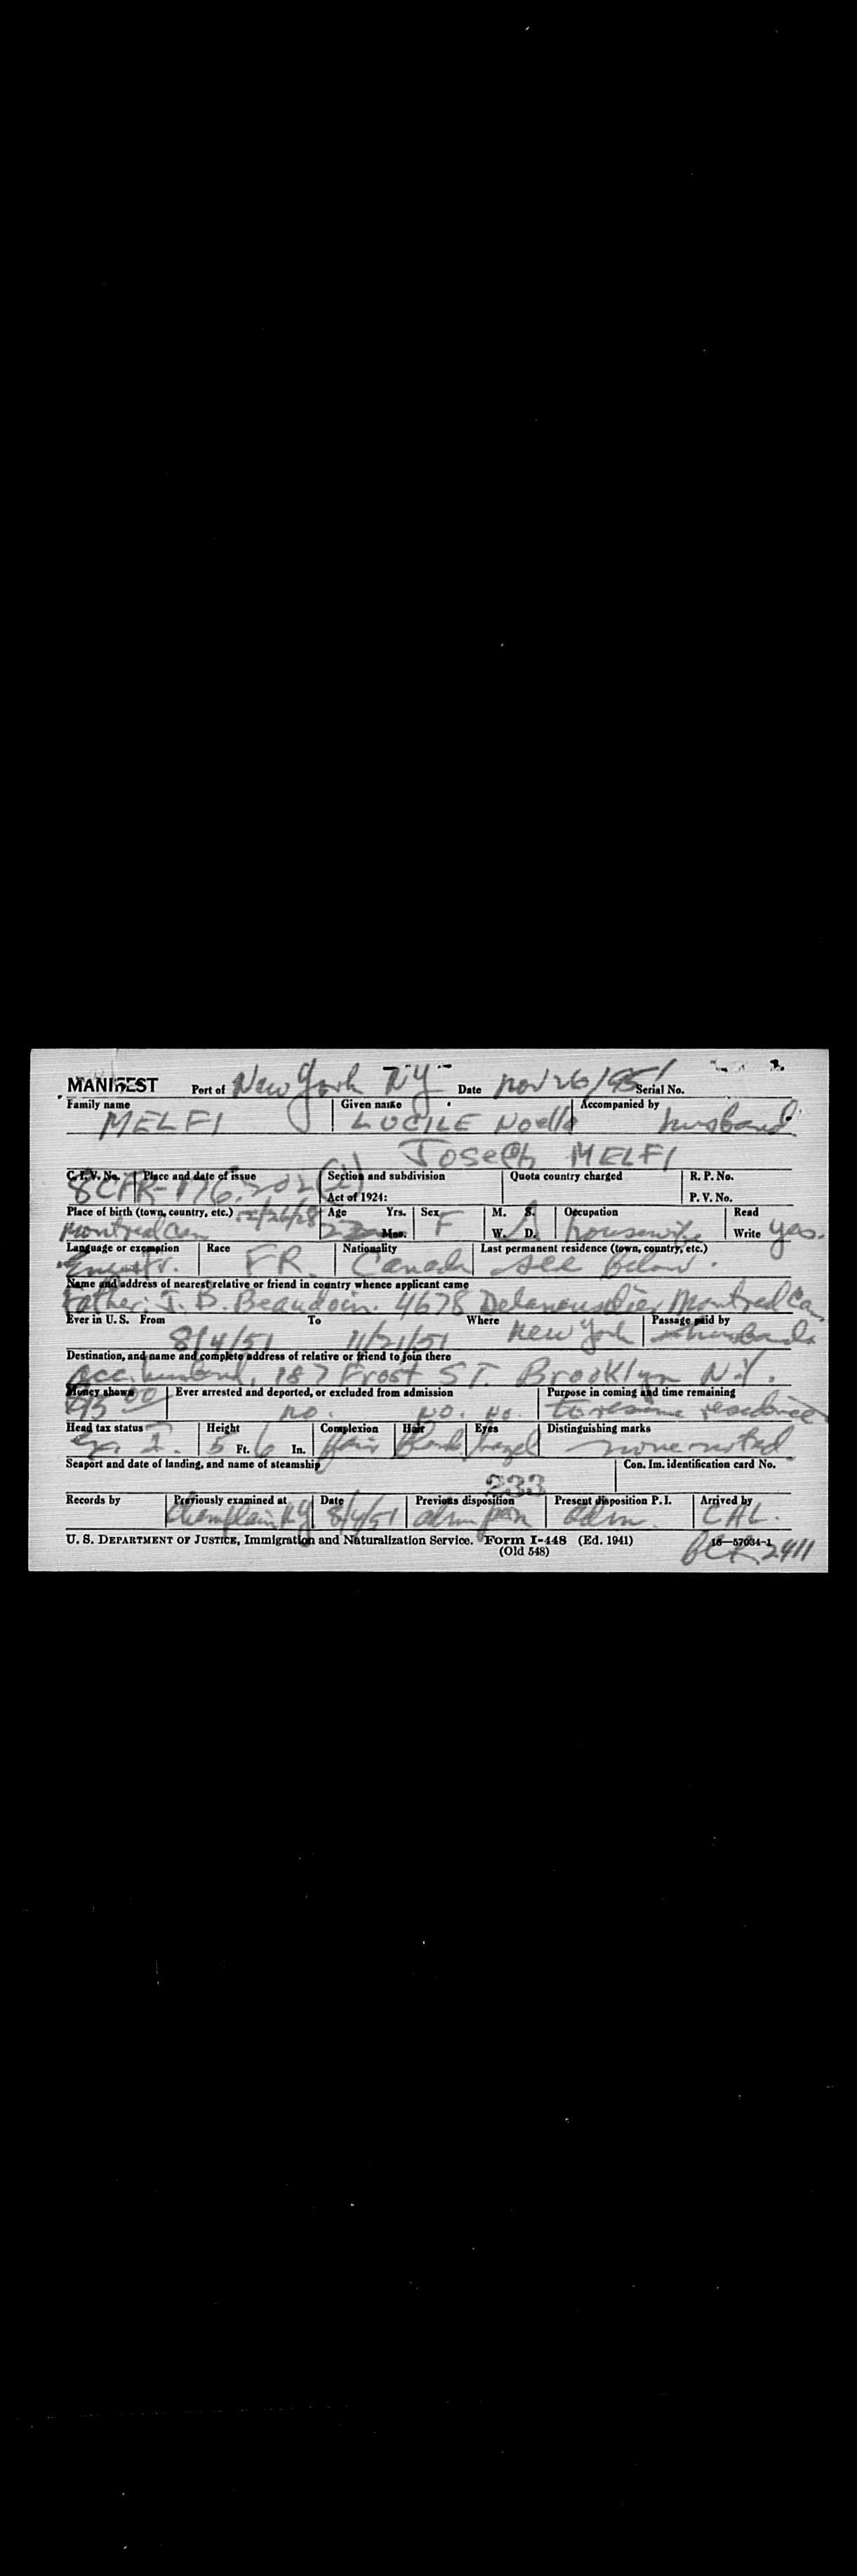 MANIFEST Port of New York NY Date Nov 26/951 Serial No.
Family name Given name Accompanied by
MELFI LUCILE Noella husband
Joseph MELFI
C. I. V. No. Place and date of issue Section and subdivision Quota country charged R. P. No.
Act of 1924: P. V. No.
Place of birth (town, country, etc.) 12/26/28 Age Yrs. Sex M. S. Occupation Read
Montreal Can Mos. F W. D. housewife Write yes.
Language or exemption Race Nationality Last permanent residence (town, country, etc.)
FR. Canada see below.
Name and address of nearest relative or friend in country whence applicant came
Father: J. B. Beaudoin. 4678 Montreal Can.
Ever in U. S. From To Where Passage paid by
8/4/51 11/21/51 New York husband
Destination, and name and complete address of relative or friend to join there
Acc. husband, 187 Frost ST. Brooklyn N.Y.
Money shown Ever arrested and deported, or excluded from admission Purpose in coming and time remaining
no. no. no. to resume residence
Head tax status Height Complexion Hair Eyes Distinguishing marks
Ex. 2. 5 Ft. 6 In. fair hazel none noted
Seaport and date of landing, and name of steamship Con. Im. identification card No.
233
Records by Previously examined at Date Previous disposition Present disposition P. I. Arrived by
Champlain NY 8/4/51 adm adm. CAL.
U. S. DEPARTMENT OF JUSTICE, Immigration and Naturalization Service. Form I-448 (Ed. 1941) 16—57034-1
(Old 548) 2411